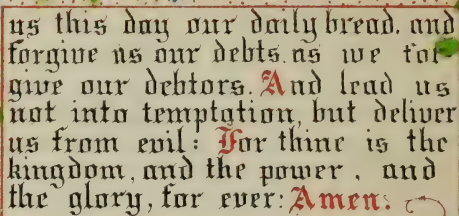 us this day our daily bread. and
forgive us our debts. as we for
give our debtors. And lead us
not into temptation, but deliver
us from evil: For thine is the
kingdom, and the power, and
the glory, for ever: Amen.